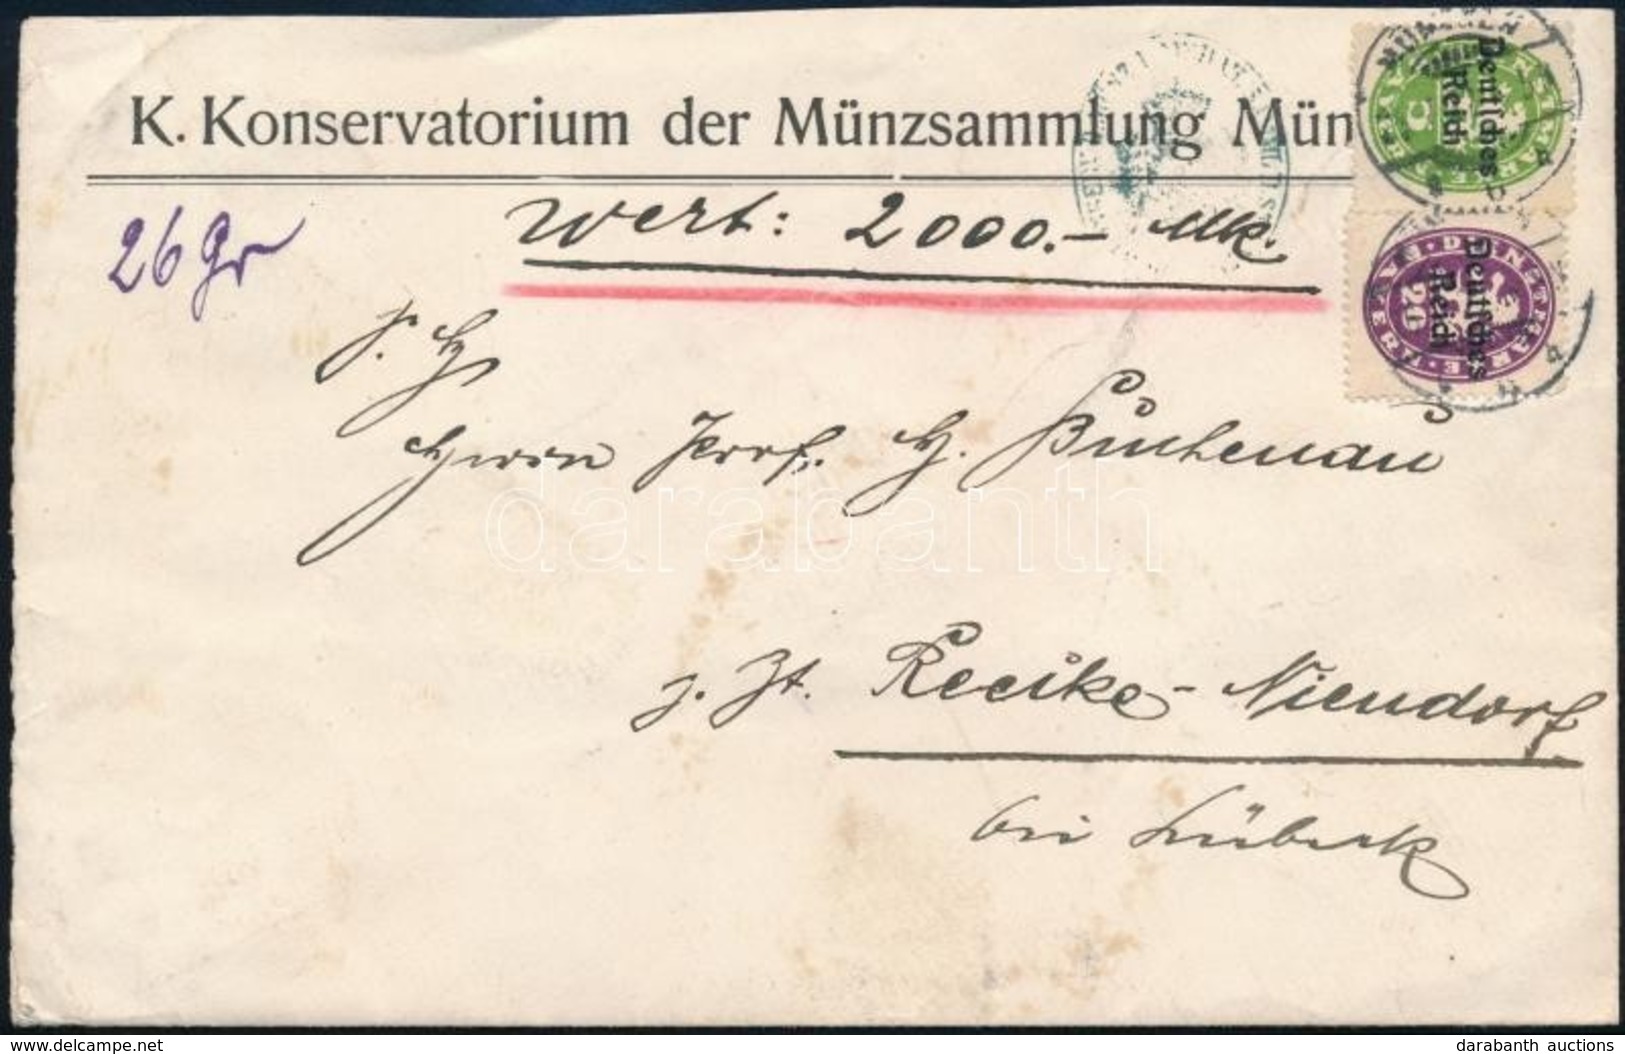 K. Konservatorium der Münzsammlung Mün
MÜNCHEN
Deutsches
Reich
5
26 Gr
Wert: 2000.- Mk.
Deutsches
Reich
20
S. H.
Herrn Prof. H. Buchenau
darabanth
z. Zt. Reecke-Niendorf
bei Lübeck
delcampe.net
darabanth auctions